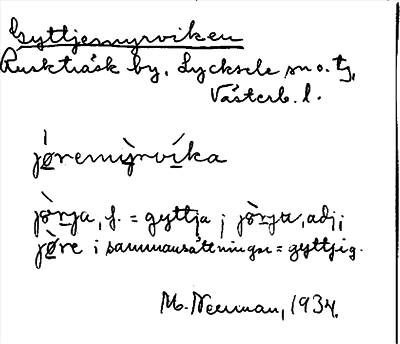 Gyttjemyrviken
Ruskträsk by, Lycksele sn o. tg,
Västerb. l.
jøremỳrvíka
jòrja, f. = gyttja; jòrju, adj;
jøre i sammansättningar = gyttjig.
M. Neuman, 1934.